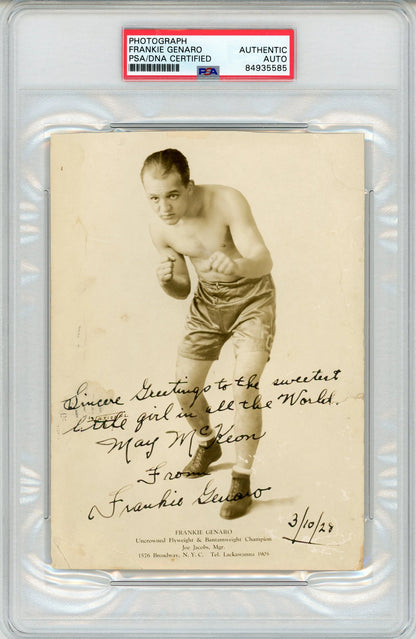 PHOTOGRAPH
FRANKIE GENARO
PSA/DNA CERTIFIED
AUTHENTIC
AUTO
PSA
84935585
Sincere Greetings to the sweetest
little girl in all the World.
May McKeon
From
Frankie Genaro
3/10/28
FRANKIE GENARO
Uncrowned Flyweight & Bantamweight Champion
Joe Jacobs, Mgr.
1576 Broadway, N. Y. C. Tel. Lackawanna 1905